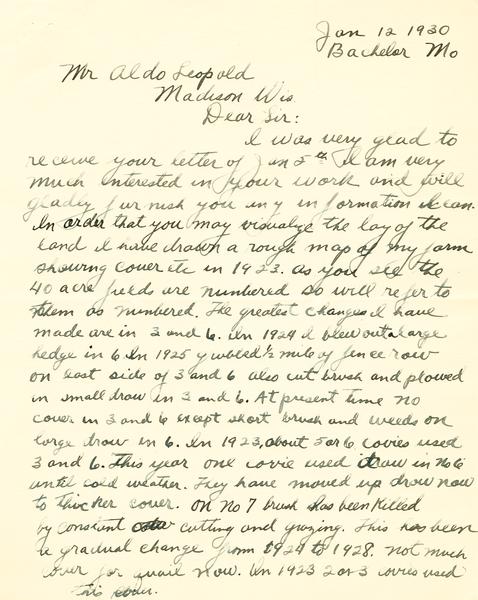 Jan 12 1930
Bachelor Mo
Mr Aldo Leopold
Madison Wis
Dear Sir:
I was very glad to
receive your letter of Jan 5th. I am very
much interested in your work and will
gladly furnish you any information I can.
In order that you may visualize the lay of the
land I have drawn a rough map of my farm
showing cover etc in 1923. as you see the
40 acre fields are numbered so will refer to
them as numbered. The greatest changes I have
made are in 3 and 6. In 1924 I blew out a large
hedge in 6. In 1925 grubbed ½ mile of fence row
on east side of 3 and 6 also cut brush and plowed
in small draw in 3 and 6. At present time no
cover in 3 and 6 except short brush and weeds on
large draw in 6. In 1923, about 5 or 6 covies used
3 and 6. This year one covie used draw in No 6
until cold weather. They have moved up draw now
to thicker cover. On No 7 brush has been killed
by constant cutting and grazing. This has been
a gradual change from 1924 to 1928. Not much
cover for quail now. In 1923 2 or 3 covies used
this